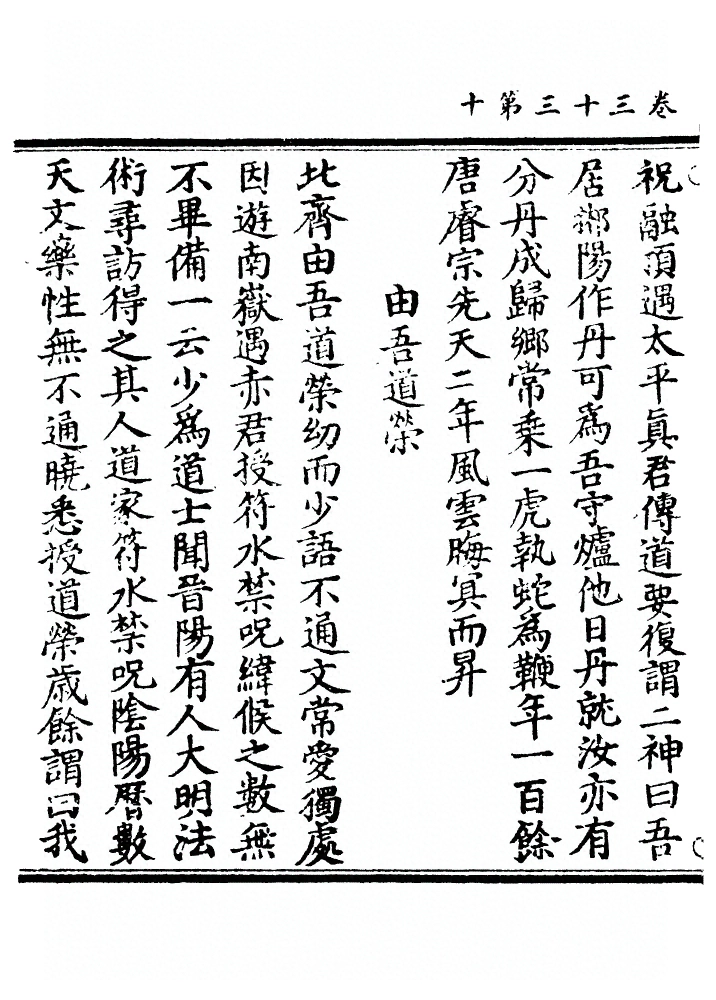 卷三十三第十
祝融頂遇太平眞君傳道要復謂二神曰吾
居鄱陽作丹可爲吾守爐他日丹就汝亦有
分丹成歸鄉常乘一虎執蛇爲鞭年一百餘
唐睿宗先天二年風雲晦冥而昇
由吾道榮
北齊由吾道榮幼而少語不通文常愛獨處
因遊南嶽遇赤君授符水禁呪緯候之數無
不畢備一云少爲道士聞晉陽有人大明法
術尋訪得之其人道家符水禁呪陰陽曆數
天文藥性無不通曉悉授道榮歲餘謂曰我